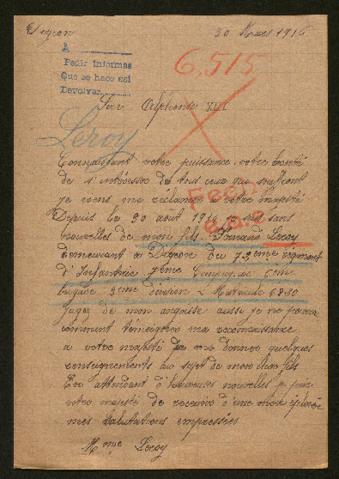 30 Mars 1916
A
Pedir informes
Que se hace asi
Devolver
6,515
Sir Alphonse XIII
Leroy
Connaissant votre puissance votre bonté
de s'intéresser de tous ceux qui souffrent
je viens me réclamer à votre majesté
Depuis le 20 août 1914 je suis sans
nouvelles de mon fils Leroy
demeurant à du eme régiment
d'Infanterie 7ème Compagnie
brigade division Matricule 6880
Jugez de mon angoisse aussi je ne
comment témoigner ma reconnaissance
à votre majesté de me donner quelques
renseignements au sujet de mon cher fils
En attendant d'heureuses nouvelles je prie
votre majesté de recevoir d'une mère éplorée
mes salutations empressées
Mme Leroy